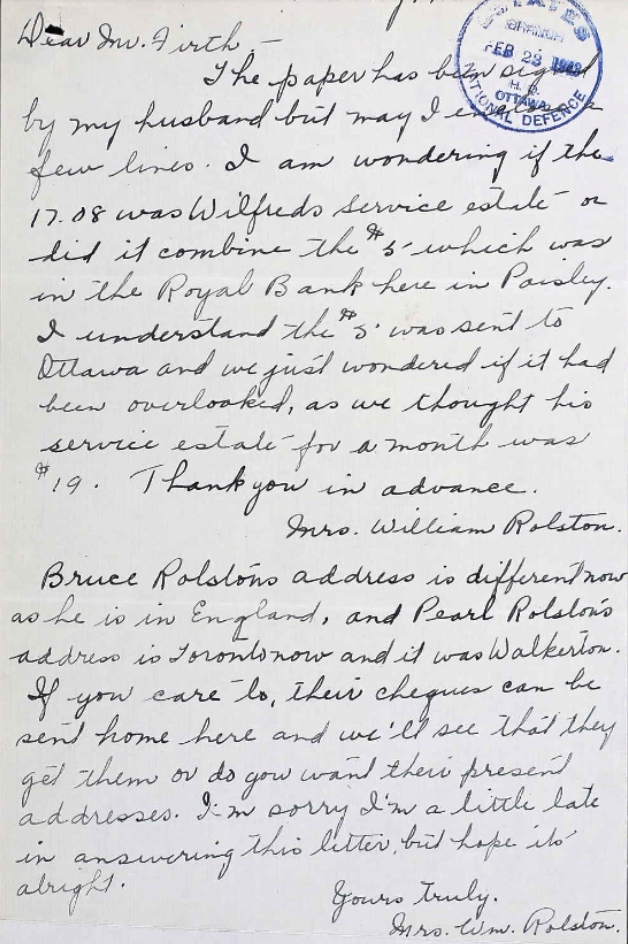 Dear Mr. Firth -
The paper has been signed
by my husband but may I enclose a
few lines. I am wondering if the
17.08 was Wilfreds service estate or
did it combine the $5 which was
in the Royal Bank here in Paisley.
I understand the $5 was sent to
Ottawa and we just wondered if it had
been overlooked, as we thought his
service estate for a month was
$19. Thank you in advance.
Mrs. William Rolston.
Bruce Rolston's address is different now
as he is in England, and Pearl Rolston's
address is Toronto now and it was Walkerton.
If you care to, their cheques can be
sent home here and we'll see that they
get them or do you want their present
addresses. I'm sorry I'm a little late
in answering this letter, but hope its
alright.
Yours truly.
Mrs. Wm. Rolston.
ESTATES
BRANCH
FEB 23
H. Q.
OTTAWA
NATIONAL DEFENCE